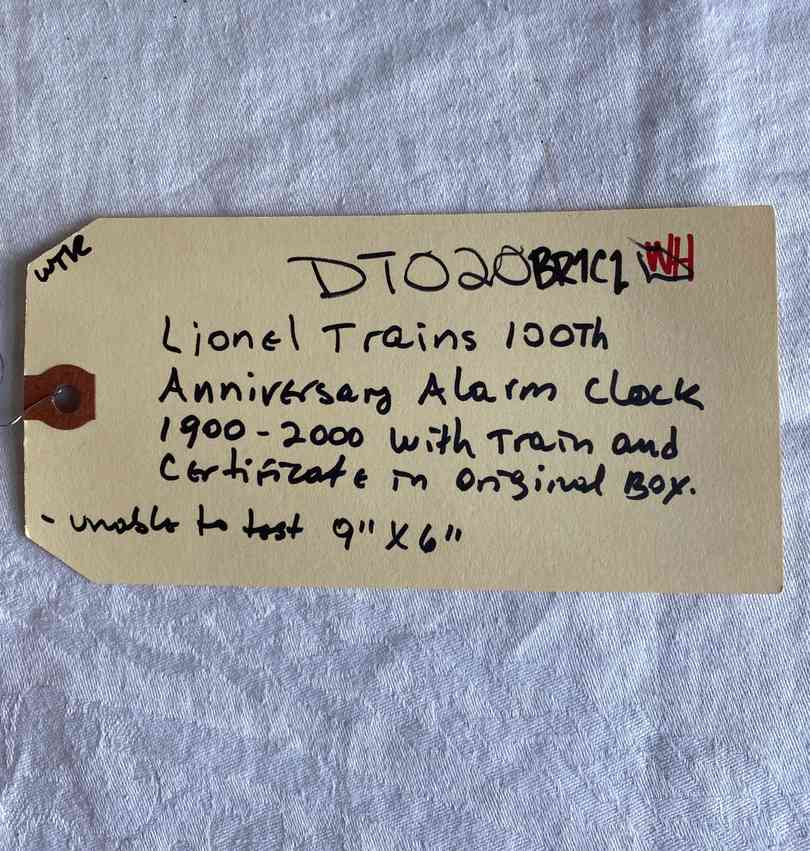 WTR
DT020BR1C1 WH
Lionel Trains 100Th
Anniversary Alarm Clock
1900-2000 with Train and
Certificate in Original Box.
- unable to test 9" X 6"